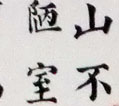 山不
陋室